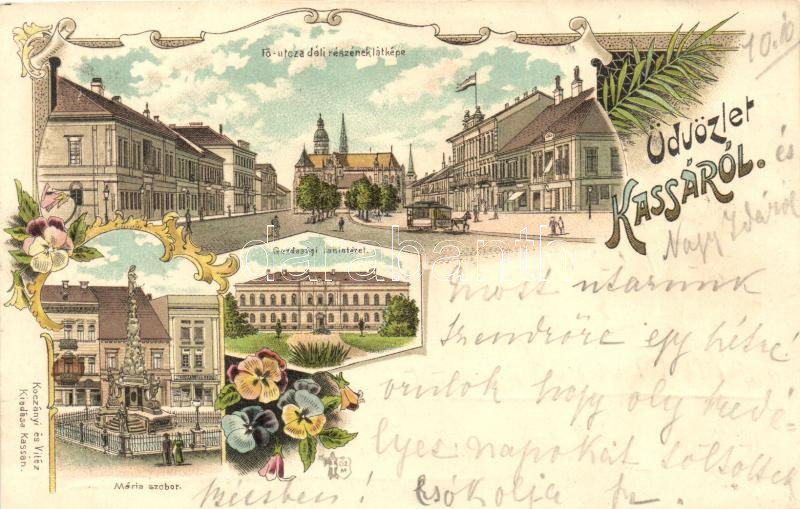 Fő-utcza déli részének látképe
10.10
Üdvözlet
KASSÁRÓL.
és
Nagy Idáról
Gazdasági tanintézet.
Most utazunk
Szendrőre egy hétre
örülök hogy oly kedé-
lyes napokat töltöttek
Bécsben! Csókolja
Mária szobor.
Koczányi és Vitéz
Kiadása Kassán.
darabanth